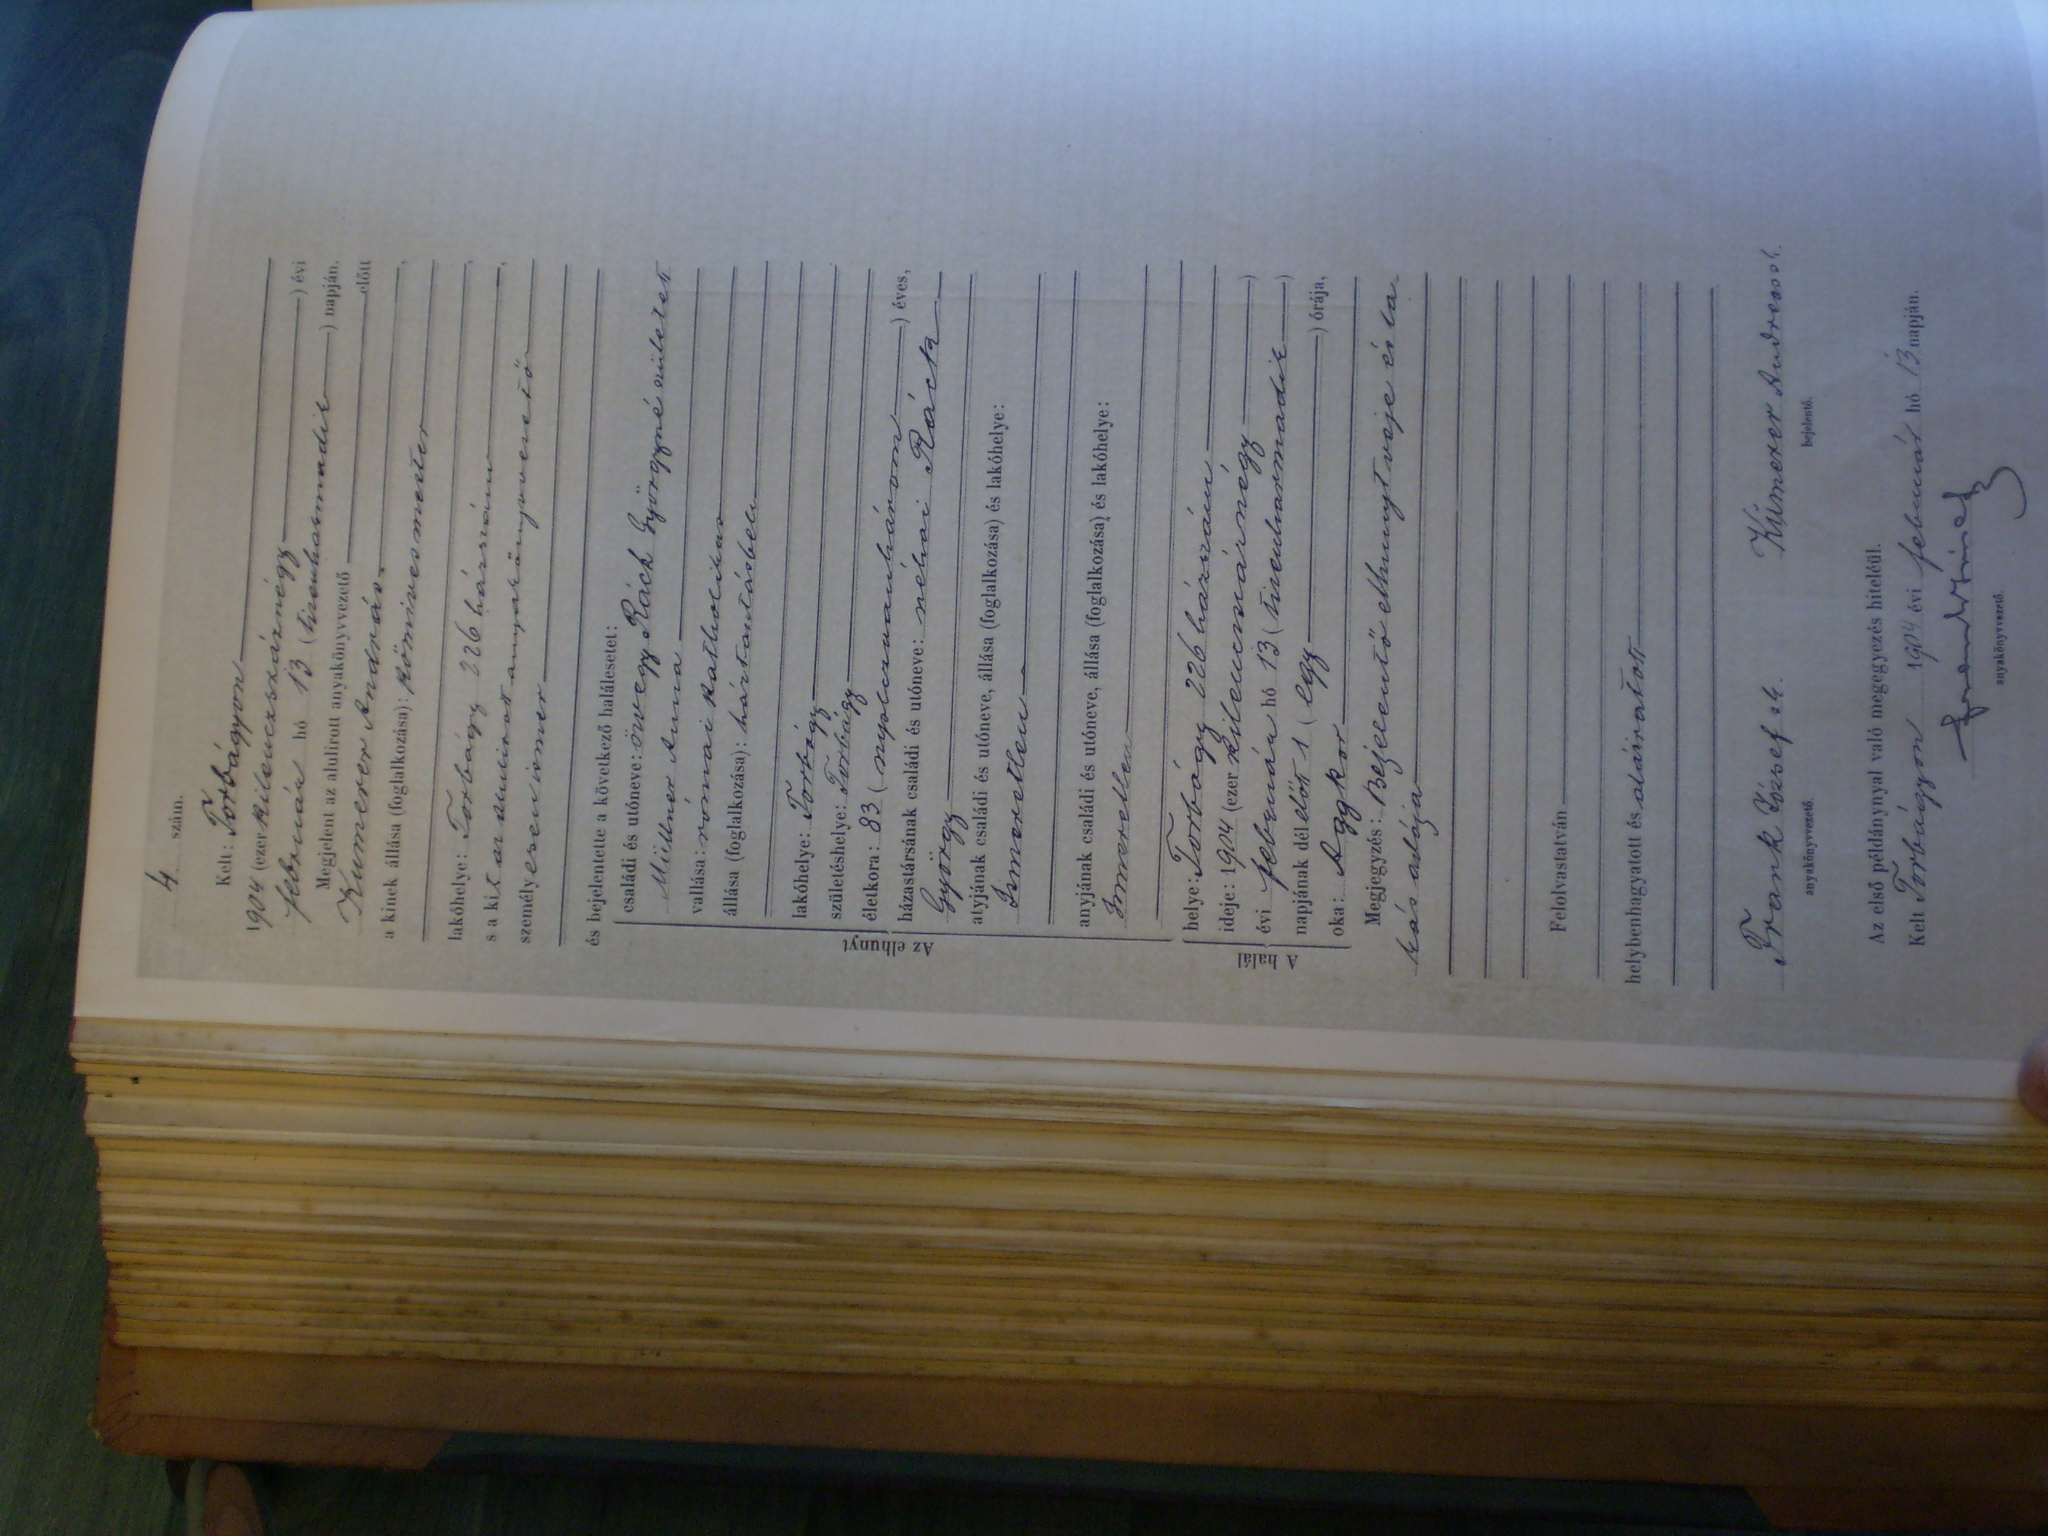 4 szám.
Kelt: Torbágyon
1904 (ezer kilenczszáznégy) évi
február hó 13 (tizenharmadik) napján.
Megjelent az alulirott anyakönyvvezető előtt
Kumerer András
a kinek állása (foglalkozása): kőmívesmester,
lakóhelye: Torbágy 226 házszám,
s a kit az alulirott anyakönyvvezető
személyesen ismer
és bejelentette a következő halálesetet:
Az elhunyt
családi és utóneve: özvegy Rách Györgyné született
Müllner Anna
vallása: római katholikus
állása (foglalkozása): háztartásbeli
lakóhelye: Torbágy
születéshelye: Torbágy
életkora: 83 (nyolczvanhárom) éves,
házastársának családi és utóneve: néhai Rách
György
atyjának családi és utóneve, állása (foglalkozása) és lakóhelye:
Ismeretlen
anyjának családi és utóneve, állása (foglalkozása) és lakóhelye:
Ismeretlen
A halál
helye: Torbágy 226 házszám
ideje: 1904 (ezer kilenczszáznégy)
évi február hó 13 (tizenharmadik)
napjának délelőtt 1 (egy) órája,
oka: Aggkor
Megjegyzés: Bejelentő elhunyt veje és la-
kás adója
Felolvastatván
helybenhagyatott és aláiratott
Frank József sk. Kúmerer Andreas sk.
anyakönyvvezető. bejelentő.
Az első példánynyal való megegyezés hiteléül.
Kelt Torbágyon 1904 évi február hó 13 napján.
anyakönyvvezető.